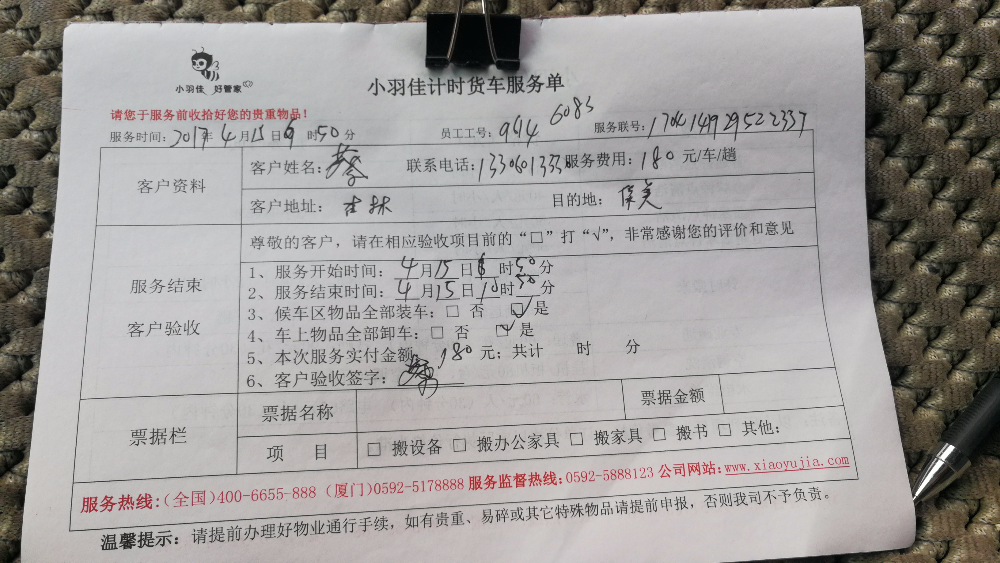 小羽佳 好管家
小羽佳计时货车服务单
请您于服务前收拾好您的贵重物品！
服务时间：2017年4月15日8时50分 员工工号：994 6083 服务联号：
客户资料
客户姓名：蔡 联系电话：133 服务费用：180元/车/趟
客户地址：吉林 目的地：
服务结束
客户验收
尊敬的客户，请在相应验收项目前的“□”打“√”，非常感谢您的评价和意见
1、服务开始时间：4月15日8时50分
2、服务结束时间：4月15日10时50分
3、候车区物品全部装车：□ 否 ☑ 是
4、车上物品全部卸车：□ 否 ☑ 是
5、本次服务实付金额：180元；共计 时 分
6、客户验收签字：
票据栏
票据名称 票据金额
项 目 □ 搬设备 □ 搬办公家具 □ 搬家具 □ 搬书 □ 其他：
服务热线：（全国）400-6655-888（厦门）0592-5178888 服务监督热线：0592-5888123 公司网站：www.xiaoyujia.com
温馨提示：请提前办理好物业通行手续，如有贵重、易碎或其它特殊物品请提前申报，否则我司不予负责。